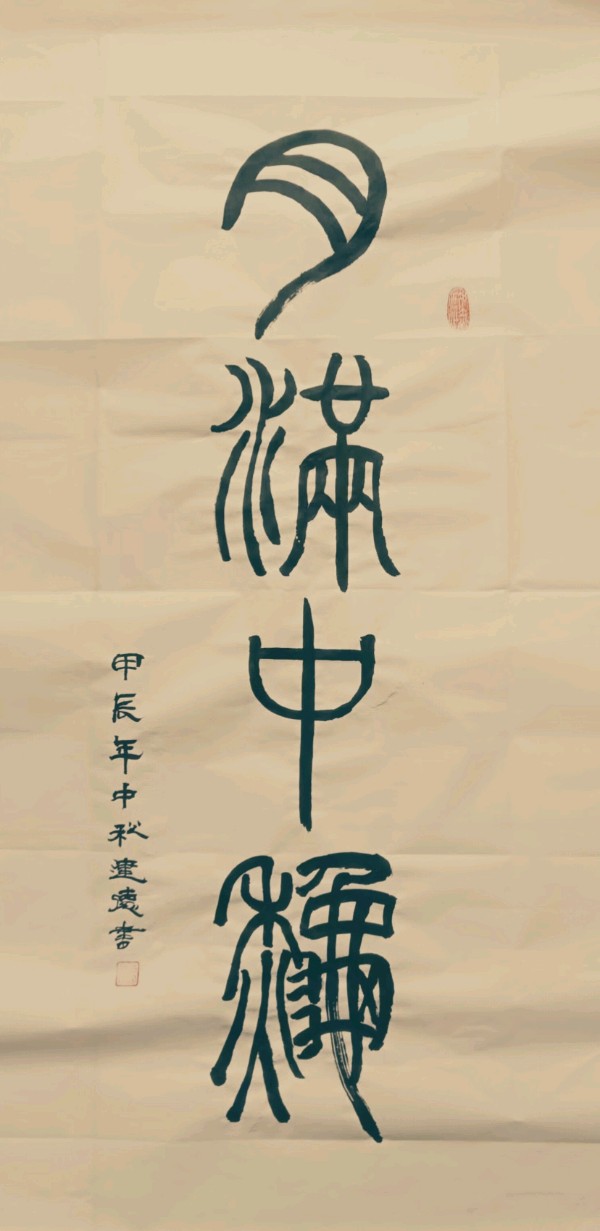 月滿中龝
甲辰年中秋建德書